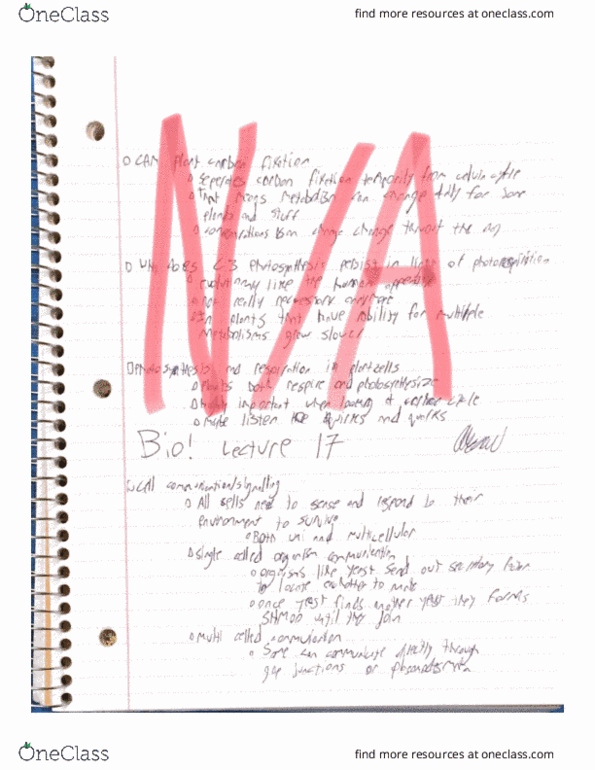 OneClass
find more resources at oneclass.com
N/A
CAM plant carbon fixation
seperates carbon fixation temporily from calvin cycle
That means metabolism can change daily for some
plants and stuff
concentrations can change change throut the day
Why does C3 photosynthesis persist in light of photorespiration
evolutionary like the human appendix
not really necessary anymore
In plants that have ability for multiple
metabolisms grow slower
Photosynthesis and respiration in plant cells
plants both respire and photosynthesize
important when looking at carbon cycle
maybe listen to quirks and quarks
Bio! Lecture 17
Cell communication/signalling
All cells need to sense and respond to their
environment to survive
Both uni and multicellular
single celled organism communication
organisms like yeast send out
to locate eachother to mate
once yeast finds another yeast they forms
SHMOO until they join
Multi celled communication
Some can communicate directly through
gap junctions or
OneClass
find more resources at oneclass.com